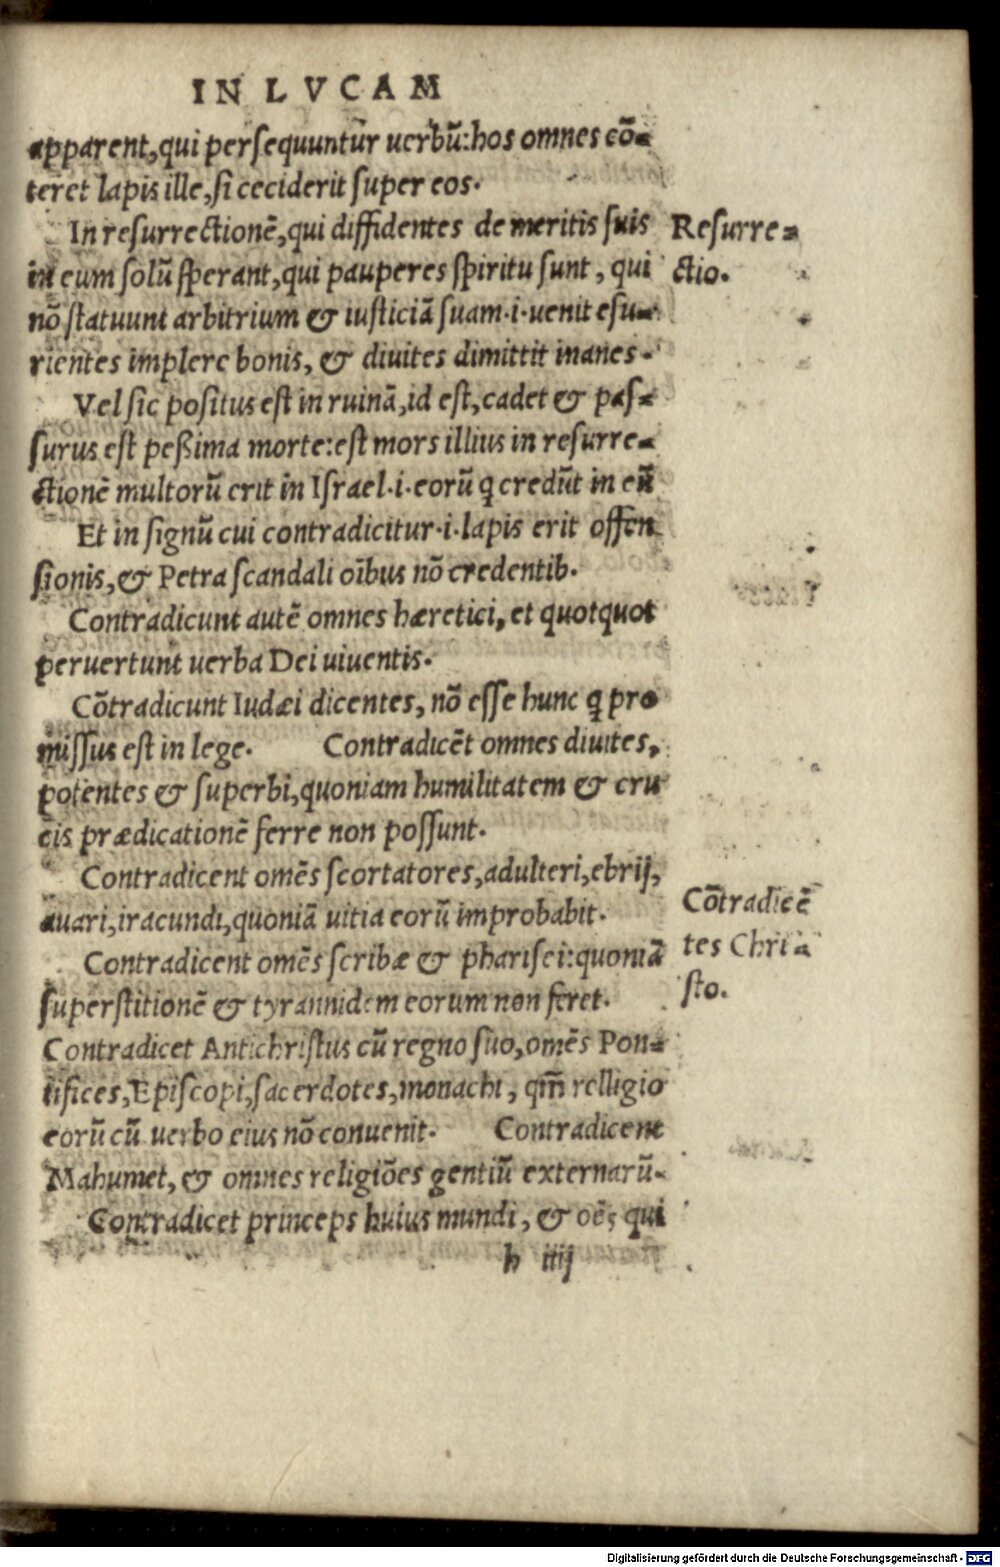 IN LVCAM
apparent, qui persequuntur uerbū: hos omnes cō-
teret lapis ille, si ceciderit super eos.
In resurrectionē, qui diffidentes de meritis suis
in eum solū sperant, qui pauperes spiritu sunt, qui
nō statuunt arbitrium & iusticiā suam. i. uenit esu-
rientes implere bonis, & diuites dimittit inanes.
Vel sic positus est in ruinā, id est, cadet & pas-
surus est peßima morte: est mors illius in resurre-
ctionē multorū erit in Israel. i. eorū q̃ credūt in eū
Et in signū cui contradicitur. i. lapis erit offen
sionis, & Petra scandali oībus nō credentib.
Contradicunt autē omnes hæretici, et quotquot
peruertunt uerba Dei uiuentis.
Cōtradicunt Iudæi dicentes, nō esse hunc q̃ pro
missus est in lege. Contradicēt omnes diuites,
potentes & superbi, quoniam humilitatem & cru
cis prædicationē ferre non possunt.
Contradicent omēs scortatores, adulteri, ebrij,
auari, iracundi, quoniā uitia eorū improbabit.
Contradicent omēs scribæ & pharisei: quoniā
superstitionē & tyrannidem eorum non feret.
Contradicet Antichristus cū regno suo, omēs Pon-
tifices, Episcopi, sacerdotes, monachi, qm̄ relligio
eorū cū uerbo eius nō conuenit. Contradicent
Mahumet, & omnes religiōes gentiū externarū.
Contradicet princeps huius mundi, & oēs qui
h iiij
Resurre-
ctio.
Cōtradicē
tes Chri-
sto.
Digitalisierung gefördert durch die Deutsche Forschungsgemeinschaft - DFG